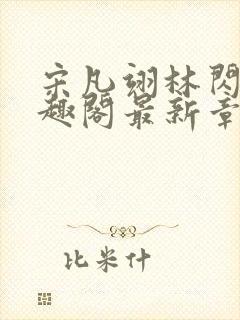 宋凡翊林閃
趣閣最新章
比米什